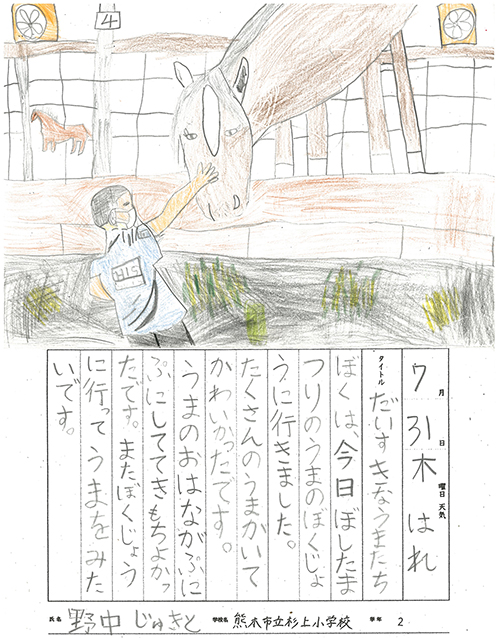 4
7月31日木曜日 天気 はれ
タイトル だいすきなうまたち
ぼくは、今日ぼしたま
つりのうまのぼくじょ
うに行きました。
たくさんのうまがいて
かわいかったです。
うまのおはながぷに
ぷにしててきもちよかっ
たです。またぼくじょう
に行ってうまをみた
いです。
氏名 野中じゅきと 学校名 熊本市立杉上小学校 学年 2